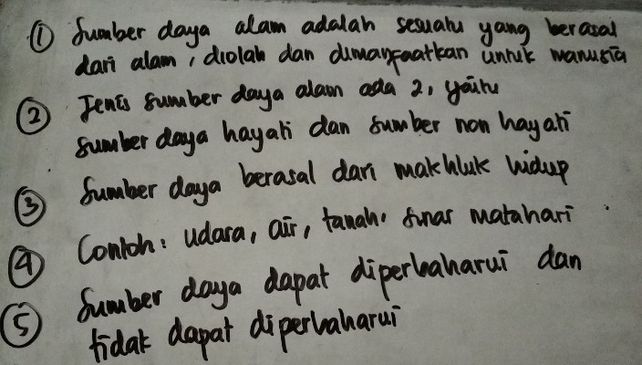 ① Sumber daya alam adalah sesuatu yang berasal
dari alam, diolah dan dimanfaatkan untuk manusia
② Jenis sumber daya alam ada 2, yaitu
sumber daya hayati dan sumber non hayati
③ Sumber daya berasal dari makhluk hidup
④ Contoh: udara, air, tanah, sinar matahari
⑤ Sumber daya dapat diperbaharui dan
tidak dapat diperbaharui